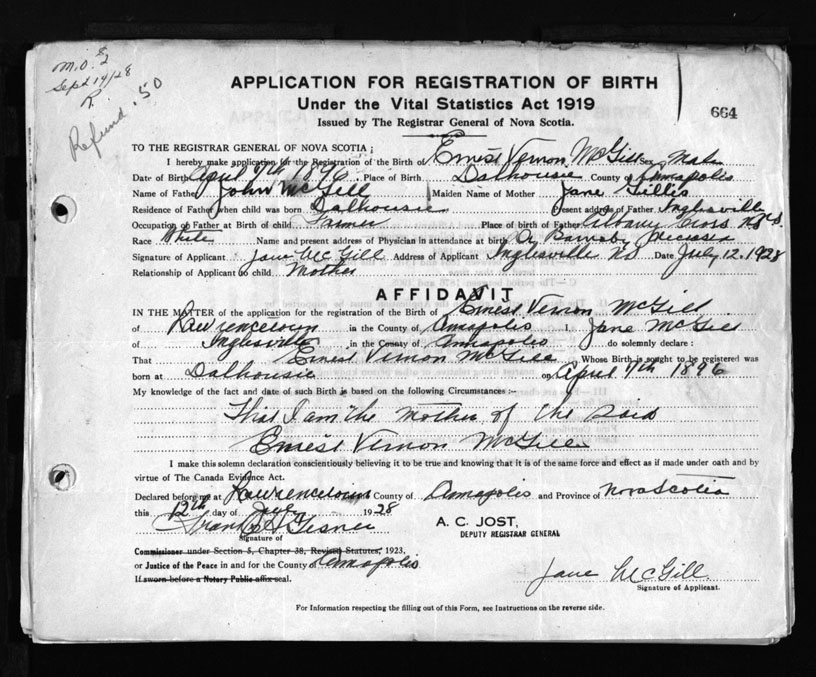 M.O. 2
Sept 14/28
R
Refund .50
APPLICATION FOR REGISTRATION OF BIRTH
Under the Vital Statistics Act 1919
Issued by The Registrar General of Nova Scotia.
664
TO THE REGISTRAR GENERAL OF NOVA SCOTIA;
I hereby make application for the Registration of the Birth of Ernest Vernon McGill Sex Male
Date of Birth April 7th 1896 Place of Birth Dalhousie County of Annapolis
Name of Father John McGill Maiden Name of Mother Jane Gillis
Residence of Father when child was born Dalhousie Present address of Father Inglesville
Occupation of Father at Birth of child Farmer Place of birth of Father Albany Cross N.S.
Race White Name and present address of Physician in attendance at birth Dr Barnaby Deceased
Signature of Applicant Jane McGill Address of Applicant Inglesville NS Date July 12. 1928
Relationship of Applicant to child Mother
AFFIDAVIT
IN THE MATTER of the application for the registration of the Birth of Ernest Vernon McGill
of Lawrencetown in the County of Annapolis I, Jane McGill
of Inglesville in the County of Annapolis do solemnly declare:
That Ernest Vernon McGill Whose Birth is sought to be registered was
born at Dalhousie on April 7th 1896
My knowledge of the fact and date of such Birth is based on the following Circumstances :-
That I am the mother of the said
Ernest Vernon McGill
I make this solemn declaration conscientiously believing it to be true and knowing that it is of the same force and effect as if made under oath and by
virtue of The Canada Evidence Act.
Declared before me at Lawrencetown County of Annapolis and Province of Nova Scotia
this 12th day of July 1928
Frank H Gesner
A. C. JOST,
DEPUTY REGISTRAR GENERAL
Signature of
Commissioner under Section 5, Chapter 38, Revised Statutes, 1923,
or Justice of the Peace in and for the County of Annapolis
If sworn before a Notary Public affix seal.
Jane McGill
Signature of Applicant.
For Information respecting the filling out of this Form, see Instructions on the reverse side.